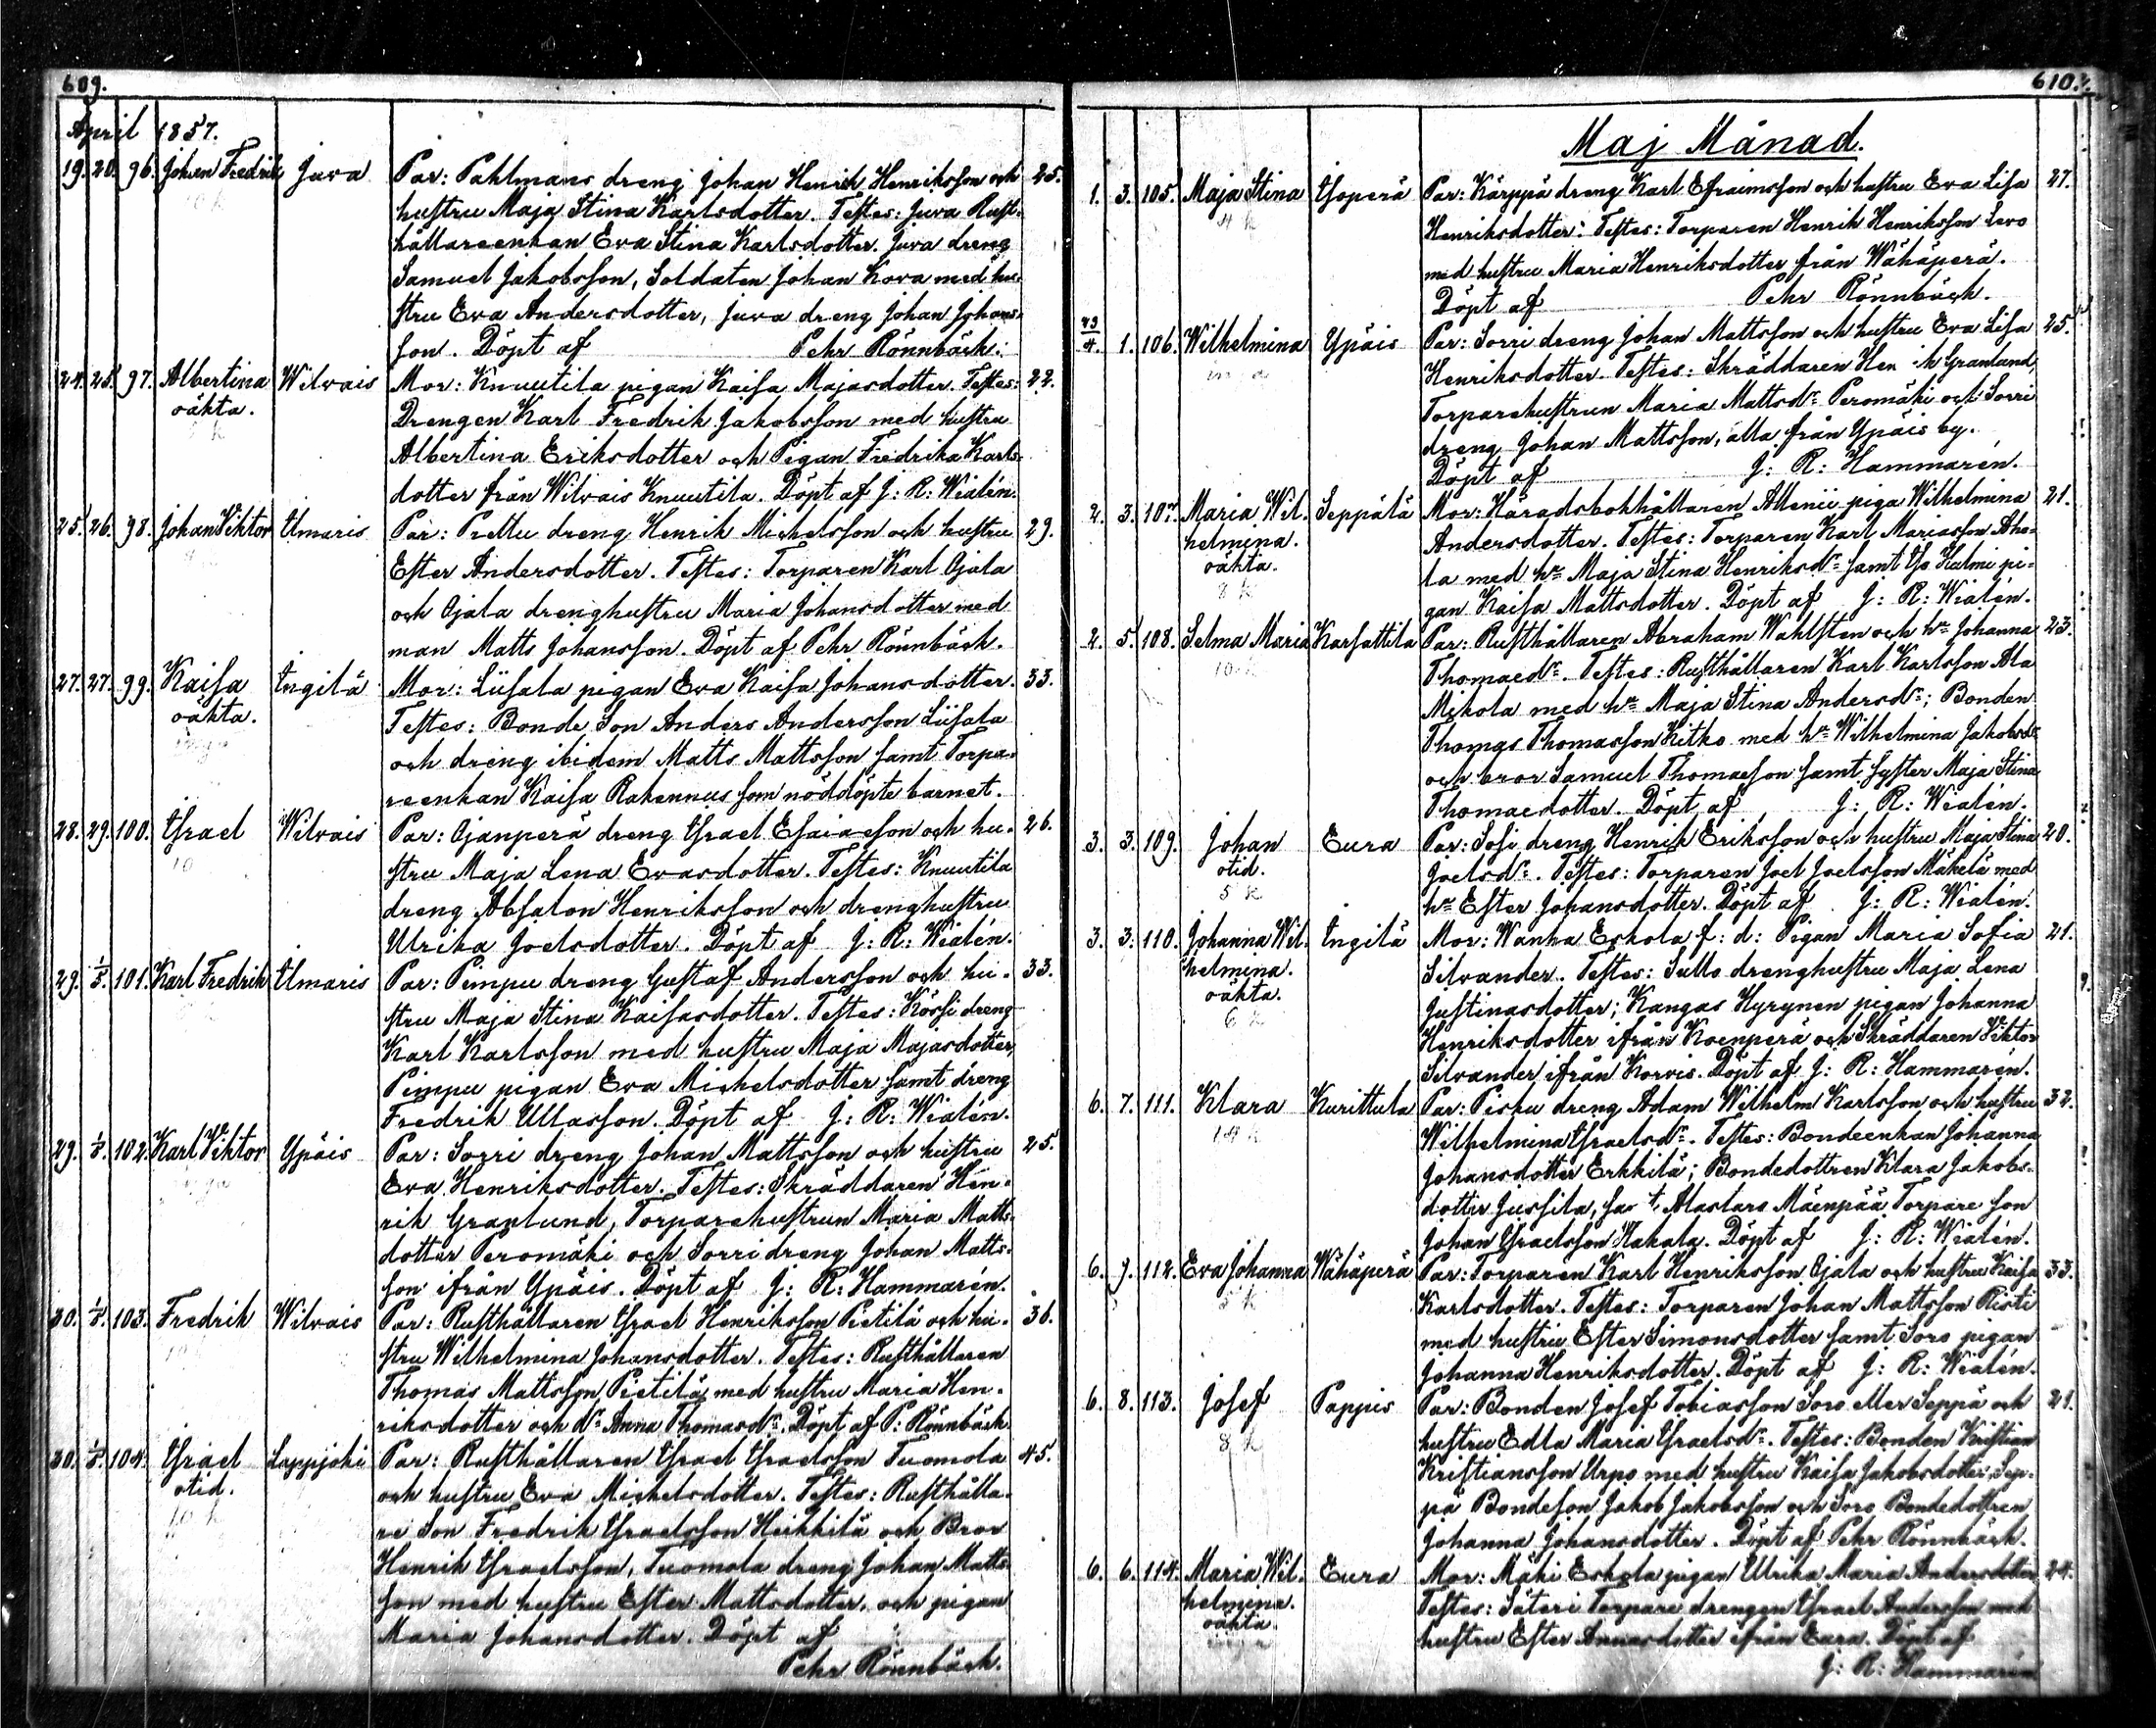 609.
April 1857.
19. 20. 96. Johan Fredrik Juva Par: Pahlmans dreng Johan Henrik Henriksson och 25.
hustru Maja Stina Karlsdotter. Testes: Juva Rust-
hållareenkan Eva Stina Karlsdotter. Juva dreng
Samuel Jakobsson, Soldaten Johan Kova med hu-
stru Eva Andersdotter, Juva dreng Johan Johans-
son. Döpt af Pehr Rönnbäck.
24. 25. 97. Albertina Wilvais Mor: Knuutila pigan Kaisa Majasdotter. Testes: 22.
oäkta. Drengen Karl Fredrik Jakobsson med hustru
Albertina Eriksdotter och Pigan Fredrika Karls-
dotter från Wilvais Knuutila. Döpt af J: R: Wialén.
25. 26. 98. Johan Viktor Ilmaris Par: Prettu dreng Henrik Michelsson och hustru 29.
Ester Andersdotter. Testes: Torparen Karl Ojala
och Ojala drenghustru Maria Johansdotter med
man Matts Johansson. Döpt af Pehr Rönnbäck.
27. 27. 99. Kaisa Ingilä Mor: Liisala pigan Eva Kaisa Johansdotter. 33.
oäkta. Testes: Bonde Son Anders Andersson Liisala
och dreng ibidem Matts Mattsson samt Torpa-
reenkan Kaisa Rakennus som nöddöpte barnet.
28. 29. 100. Israel Wilvais Par: Ojanperä dreng Israel Esaiasson och hu- 26.
10 stru Maja Lena Evasdotter. Testes: Knuutila
dreng Absalon Henriksson och drenghustru
Ulrika Joelsdotter. Döpt af J: R: Wialén.
29. 1/5. 101. Karl Fredrik Ilmaris Par: Pimpu dreng Gustaf Andersson och hu- 33.
stru Maja Stina Kaisasdotter. Testes: Körsi dreng
Karl Karlsson med hustru Maja Majasdotter,
Pimpu pigan Eva Michelsdotter samt dreng
Fredrik Ullasson. Döpt af J: R: Wialén.
29. 1/5. 102. Karl Viktor Ypäis Par: Sorri dreng Johan Mattsson och hustru 25.
Eva Henriksdotter. Testes: Skräddaren Hen-
rik Granlund, Torparehustrun Maria Matts-
dotter Peromäki och Sorri dreng Johan Matts-
son ifrån Ypäis. Döpt af J: R: Hammarén.
30. 1/5. 103. Fredrik Wilvais Par: Rusthållaren Israel Henriksson Pietilä och hu- 36.
stru Wilhelmina Johansdotter. Testes: Rusthållaren
Thomas Mattsson Pietilä med hustru Maria Hen-
riksdotter och dr Anna Thomasdr. Döpt af P: Rönnbäck
30. 1/5. 104. Israel Lappjoki Par: Rusthållaren Israel Israelsson Tuomola 45.
otid. och hustru Eva Michelsdotter. Testes: Rusthålla-
re Son Fredrik Israelsson Heikkilä och Bror
Henrik Israelsson, Tuomola dreng Johan Matts-
son med hustru Ester Mattsdotter, och pigan
Maria Johansdotter. Döpt af
Pehr Rönnbäck.
610.
Maj Månad.
1. 3. 105. Maja Stina Isoperä Par: Kärppä dreng Karl Efraimsson och hustru Eva Lisa 27.
4 k Henriksdotter. Testes: Torparen Henrik Henriksson Levo
med hustru Maria Henriksdotter från Wähäperä.
Döpt af Pehr Rönnbäck.
29/4. 1. 106. Wilhelmina Ypäis Par: Sorri dreng Johan Mattsson och hustru Eva Lisa 25.
Henriksdotter. Testes: Skräddaren Hen k Granlund,
Torparehustrun Maria Mattsdr Peromäki och Sorri
dreng Johan Mattsson, alla från Ypäis by.
Döpt af J: R: Hammarén.
2. 3. 107. Maria Wil- Seppälä Mor: Häradsbokhållaren Allenii piga Wilhelmina 21.
helmina. Andersdotter. Testes: Torparen Karl Mariasson Aho-
oäkta. la med hu Maja Stina Henriksdr samt Iso Kulmi pi-
8 k gan Kaisa Mattsdotter. Döpt af J: R: Wialén.
2. 5. 108. Selma Maria Karsattila Par: Rusthållaren Abraham Wahlsten och hu Johanna 23.
10 k Thomaedr. Testes: Rusthållaren Karl Karlsson Ala
Mikola med hu Maja Stina Andersdr; Bonden
Thomas Thomasson Kitko med hu Wilhelmina Jakobsdr
och bror Samuel Thomaesson samt syster Maja Stina
Thomaedotter. Döpt af J: R: Wialén.
3. 3. 109. Johan Eura Par: Sofi dreng Henrik Eriksson och hustru Maja Stina 20.
otid. Joelsdr. Testes: Torparen Joel Joelsson Mäkelä med
5 k hu Ester Johansdotter. Döpt af J: R: Wialén.
3. 3. 110. Johanna Wil- Ingilä Mor: Wanha Eskola f: d: Pigan Maria Sofia 21.
helmina. Silvander. Testes: Sullo drenghustru Maja Lena
oäkta. Justinasdotter; Kangas Hyrynen pigan Johanna
6 k Henriksdotter ifrån Koenperä och Skräddaren Viktor
Silvander ifrån Korvis. Döpt af J: R: Hammarén.
6. 7. 111. Klara Kurittula Par: Pisku dreng Adam Wilhelm Karlsson och hustru 32.
14 k Wilhelmina Israelsdr. Testes: Bondeenkan Johanna
Johansdotter Erkkilä; Bondedottren Klara Jakobs-
dotter Jussila, sa t Alastaro Mäenpää Torpare son
Johan Israelsson Hakala. Döpt af J: R: Wialén.
6. 9. 112. Eva Johanna Wähäperä Par: Torparen Karl Henriksson Ojala och hustru Kaisa 33.
5 k Karlsdotter. Testes: Torparen Johan Mattsson Risti
med hustru Ester Simonsdotter samt Soro pigan
Johanna Henriksdotter. Döpt af J: R: Wialén.
6. 8. 113. Josef Pappis Par: Bonden Josef Tobiasson Soro eller Seppä och 21.
8 k hustru Edla Maria Israelsdr. Testes: Bonden Kristian
Kristiansson Urpo med hustru Kaisa Jakobsdotter, Sep-
pä Bondeson Jakob Jakobsson och Soro Bondedottren
Johanna Johansdotter. Döpt af Pehr Rönnbäck.
6. 6. 114. Maria Wil- Eura Mor: Mäki Eskola pigan Ulrika Maria Andersdotter 24.
helmina. Testes: Säteri Torpare drengen Israel Andersson med
oäkta. hustru Ester Annasdotter ifrån Eura. Döpt af
J: R: Hammarén